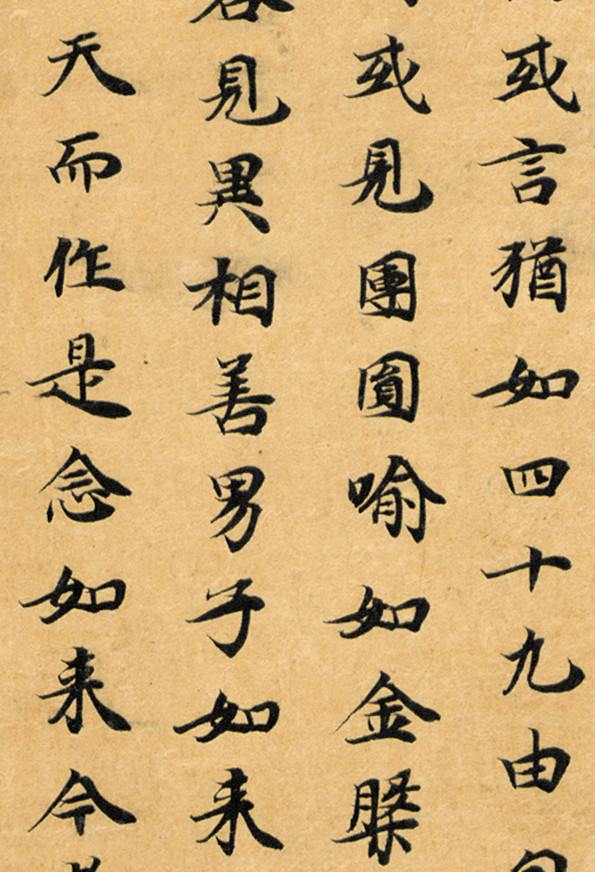 或言猶如四十九由
或見團圓喻如金槃
見異相善男子如来
天而作是念如来今